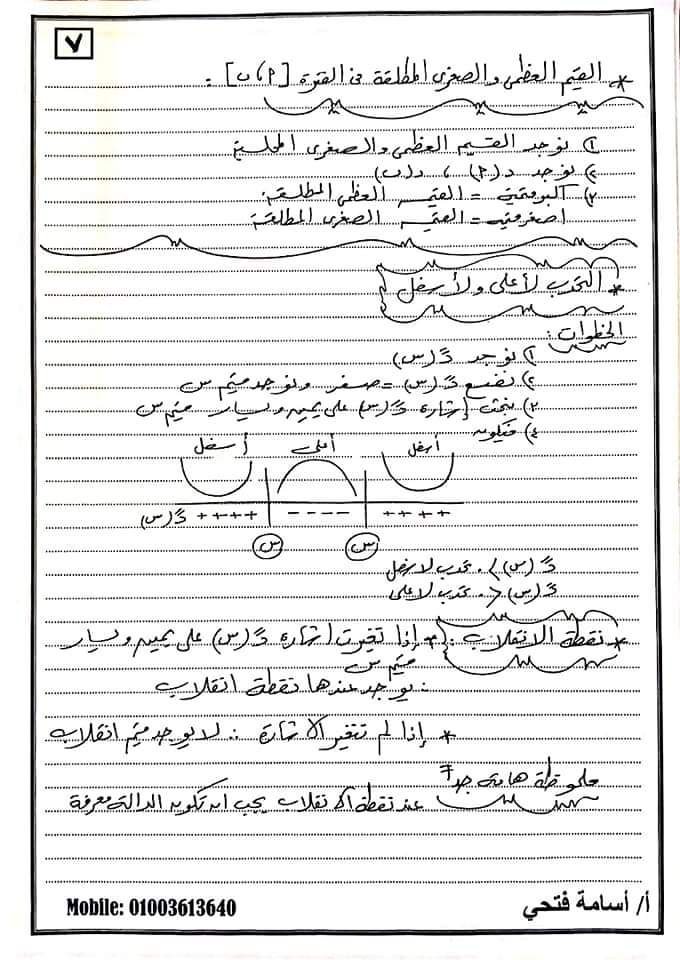 ٧
* القيم العظمى والصغرى المطلقة فى الفترة [P، ب] :
١) نوجد القيم العظمى والصغرى المحلية
٢) نوجد د(P) ، د(ب)
٣) أكبر قيمة = القيمة العظمى المطلقة
أصغر قيمة = القيمة الصغرى المطلقة
* التحدب لأعلى ولأسفل
الخطوات :
١) نوجد دً(س)
٢) نضع دً(س) = صفر ونوجد قيم س
٣) نبحث إشارة دً(س) على يمين ويسار قيم س
٤) فيكون
أسفل أعلى أسفل
دً(س) ++++ ---- ++++
س س
دً(س) > ٠ تحدب لأسفل
دً(س) < ٠ تحدب لأعلى
* نقطة الانقلاب : * إذا تغيرت إشارة دً(س) على يمين ويسار
قيم س
∴ يوجد عندها نقطة انقلاب
* إذا لم تتغير الاشارة ∴ لا يوجد قيم انقلاب
ملحوظة هامة جداً
عند نقطة الانقلاب يجب ان تكون الدالة معرفة
Mobile: 01003613640
أ/ أسامة فتحي